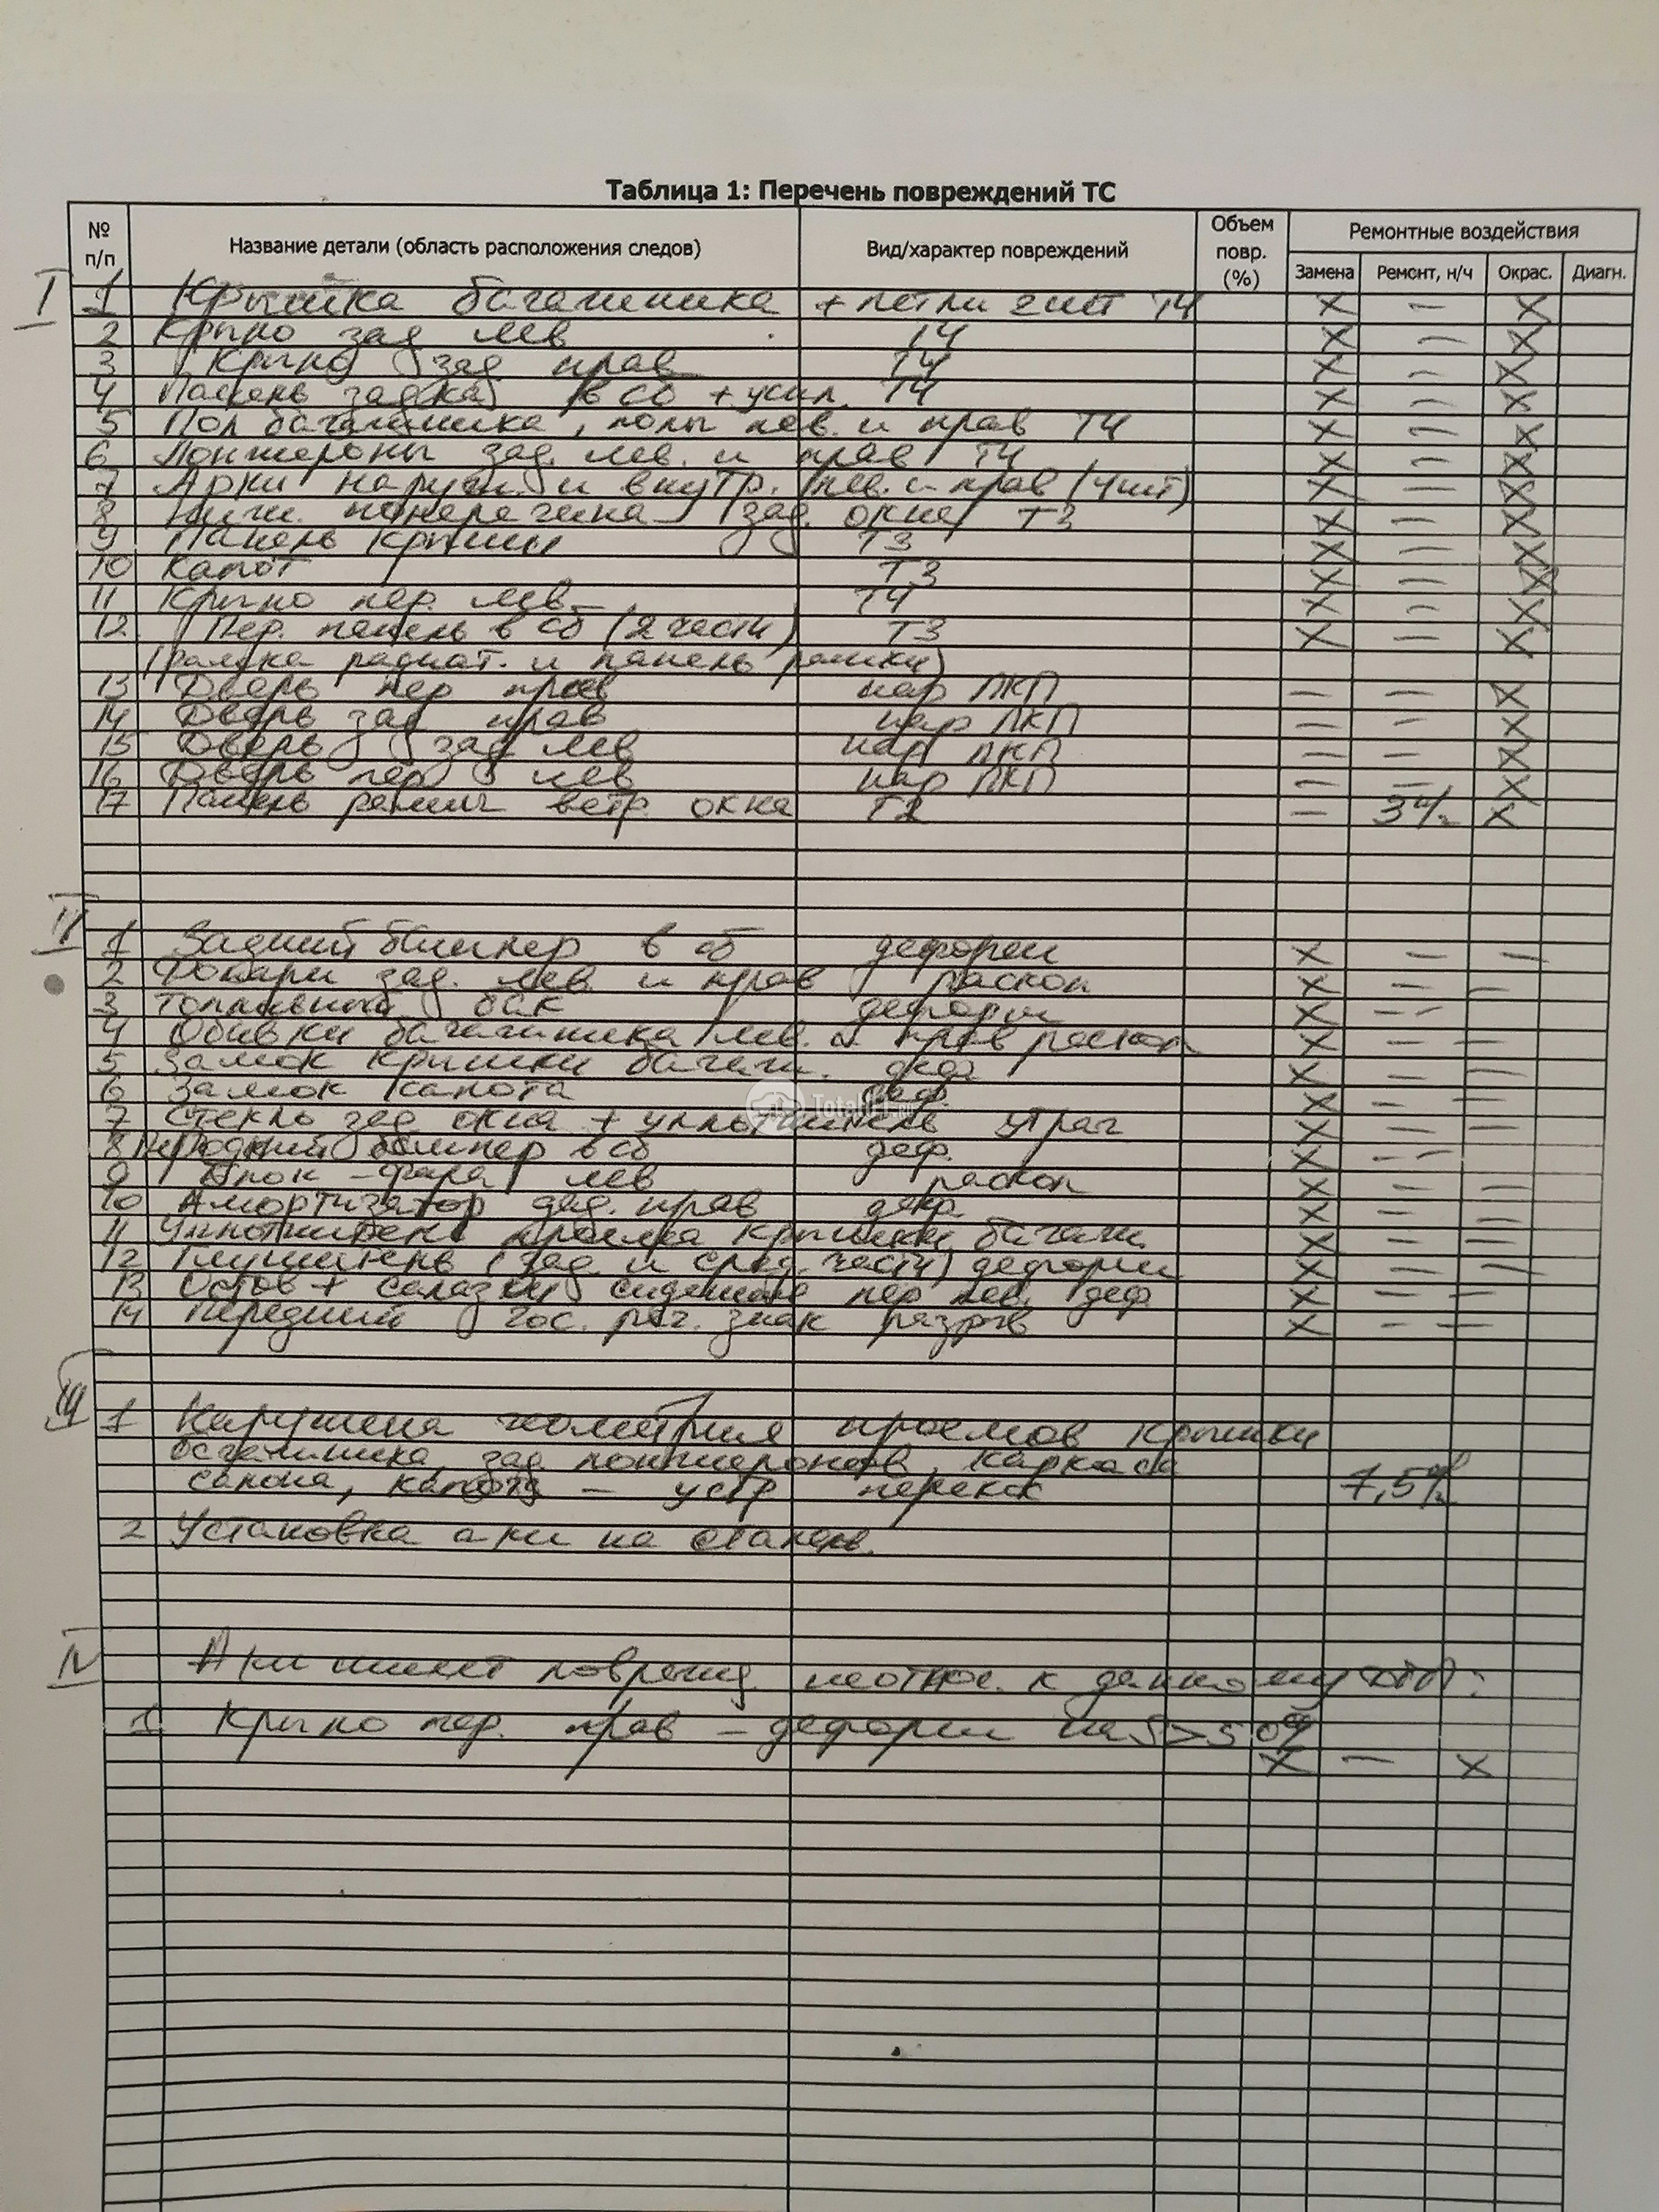 Таблица 1: Перечень повреждений ТС
№ п/п Название детали (область расположения следов) Вид/характер повреждений Объем повр. (%) Ремонтные воздействия
Замена Ремонт, н/ч Окрас. Диагн.
I 1 Крышка багажника + петли 2шт Т4 X — X
2 Крыло зад лев Т4 X — X
3 Крыло зад прав Т4 X — X
4 Панель задка в сб + усил. Т4 X — X
5 Пол багажника, полы лев. и прав Т4 X — X
6 Лонжероны зад. лев. и прав Т4 X — X
7 Арки наруж. и внутр. лев. и прав (4шт) X — X
8 Нижн. поперечина зад. окна Т3 X — X
9 Панель крыши Т3 X — X
10 Капот Т3 X — X
11 Крыло пер. лев Т4 X — X
12. Пер. панель в сб (2 части) Т3 X — X
(рамка радиат. и панель рамки)
13 Дверь пер прав нар ЛКП — — X
14 Дверь зад прав нар ЛКП — — X
15 Дверь зад лев нар ЛКП — — X
16 Дверь пер лев нар ЛКП — — X
17 Панель рамы ветр. окна Т2 — 3 ч/ X
II 1 Задний бампер в сб деформ X — —
2 Фонари зад. лев. и прав раскол X — —
3 Топливный бак деформ X — —
4 Обивки багажника лев. и прав раскол X — —
5 Замок крышки багажн. деф X — —
6 Замок капота деф. X — —
7 Стекло зад окна + уплотнитель утрач X — —
8 Передний бампер в сб деф. X — —
9 Блок-фара лев раскол X — —
10 Амортизатор зад. прав деф. X — —
11 Уплотнитель проема крышки багажн. X — —
12 Глушитель (зад и сред. части) деформ X — —
13 Остов + салазки сиденья пер лев. деф X — —
14 Передний гос. рег. знак разрыв X — —
TotalHA.ru
III 1 Нарушена геометрия проемов крышки
багажника, зад лонжеронов, каркаса
салона, капота — устр перекос 7,5
2 Установка а/м на стапель.
IV А/м имеет поврежд. неотнос. к данному ДТП:
1 Крыло пер. прав — деформ на S > 50%
X — X